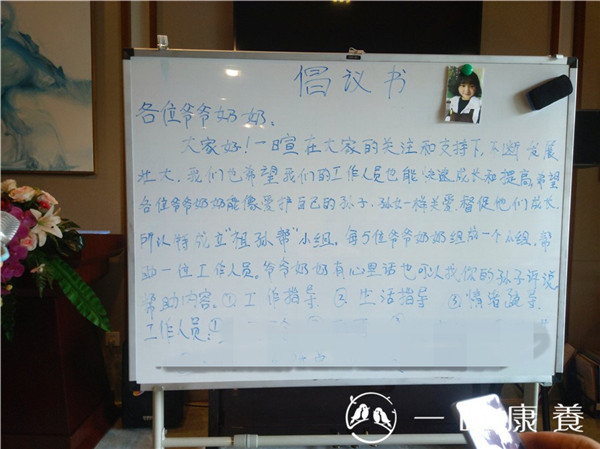 倡议书
各位爷爷奶奶、
大家好！一暄在大家的关注和支持下，不断发展
壮大，我们也希望我们的工作人员也能快速成长和提高，希望
各位爷爷奶奶能像爱护自己的孙子、孙女一样关爱、督促他们成长。
所以特成立"祖孙帮"小组，每5位爷爷奶奶组成一个小组，帮
助一位工作人员。爷爷奶奶有心里话也可以找你的孙子诉说
帮助内容：①工作指导 ②生活指导 ③情绪疏导
工作人员：①
一 康養